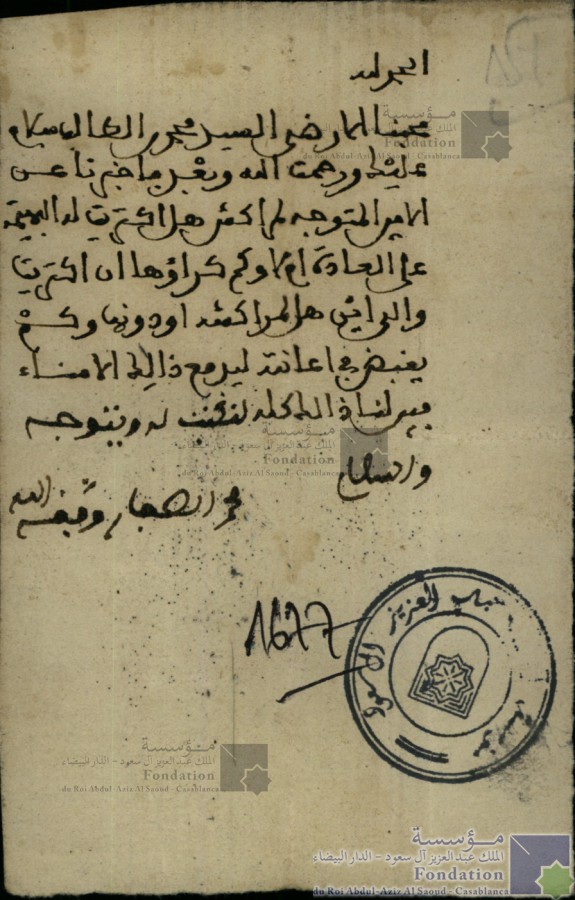 الحمد لله
محبنا الارضى السيد محمد الطالب سلام
عليك ورحمت الله وبعد بما خبرنا عن
الامين المتوجه لمراكش هل اكتريت له البهيمة
على العادة ام لا وكم كراؤها ان اكتريت
والى اين هل لمراكشه او دونها وكم
يقبض في اعانته ليدفع ذالك الامناء
بين لنا ذالك كله لنكتب له ويتوجه
والسلام
محمد الصفار وفقه الله
1677
مؤسسة
الملك عبد العزيز آل سعود - الدار البيضاء
Fondation
du Roi Abdul-Aziz Al Saoud - Casablanca
مؤسسة
الملك عبد العزيز آل سعود - الدار البيضاء
Fondation
du Roi Abdul-Aziz Al Saoud - Casablanca
مؤسسة
الملك عبد العزيز آل سعود - الدار البيضاء
Fondation
du Roi Abdul-Aziz Al Saoud - Casablanca
مؤسسة
الملك عبد العزيز آل سعود - الدار البيضاء
Fondation
du Roi Abdul-Aziz Al Saoud - Casablanca